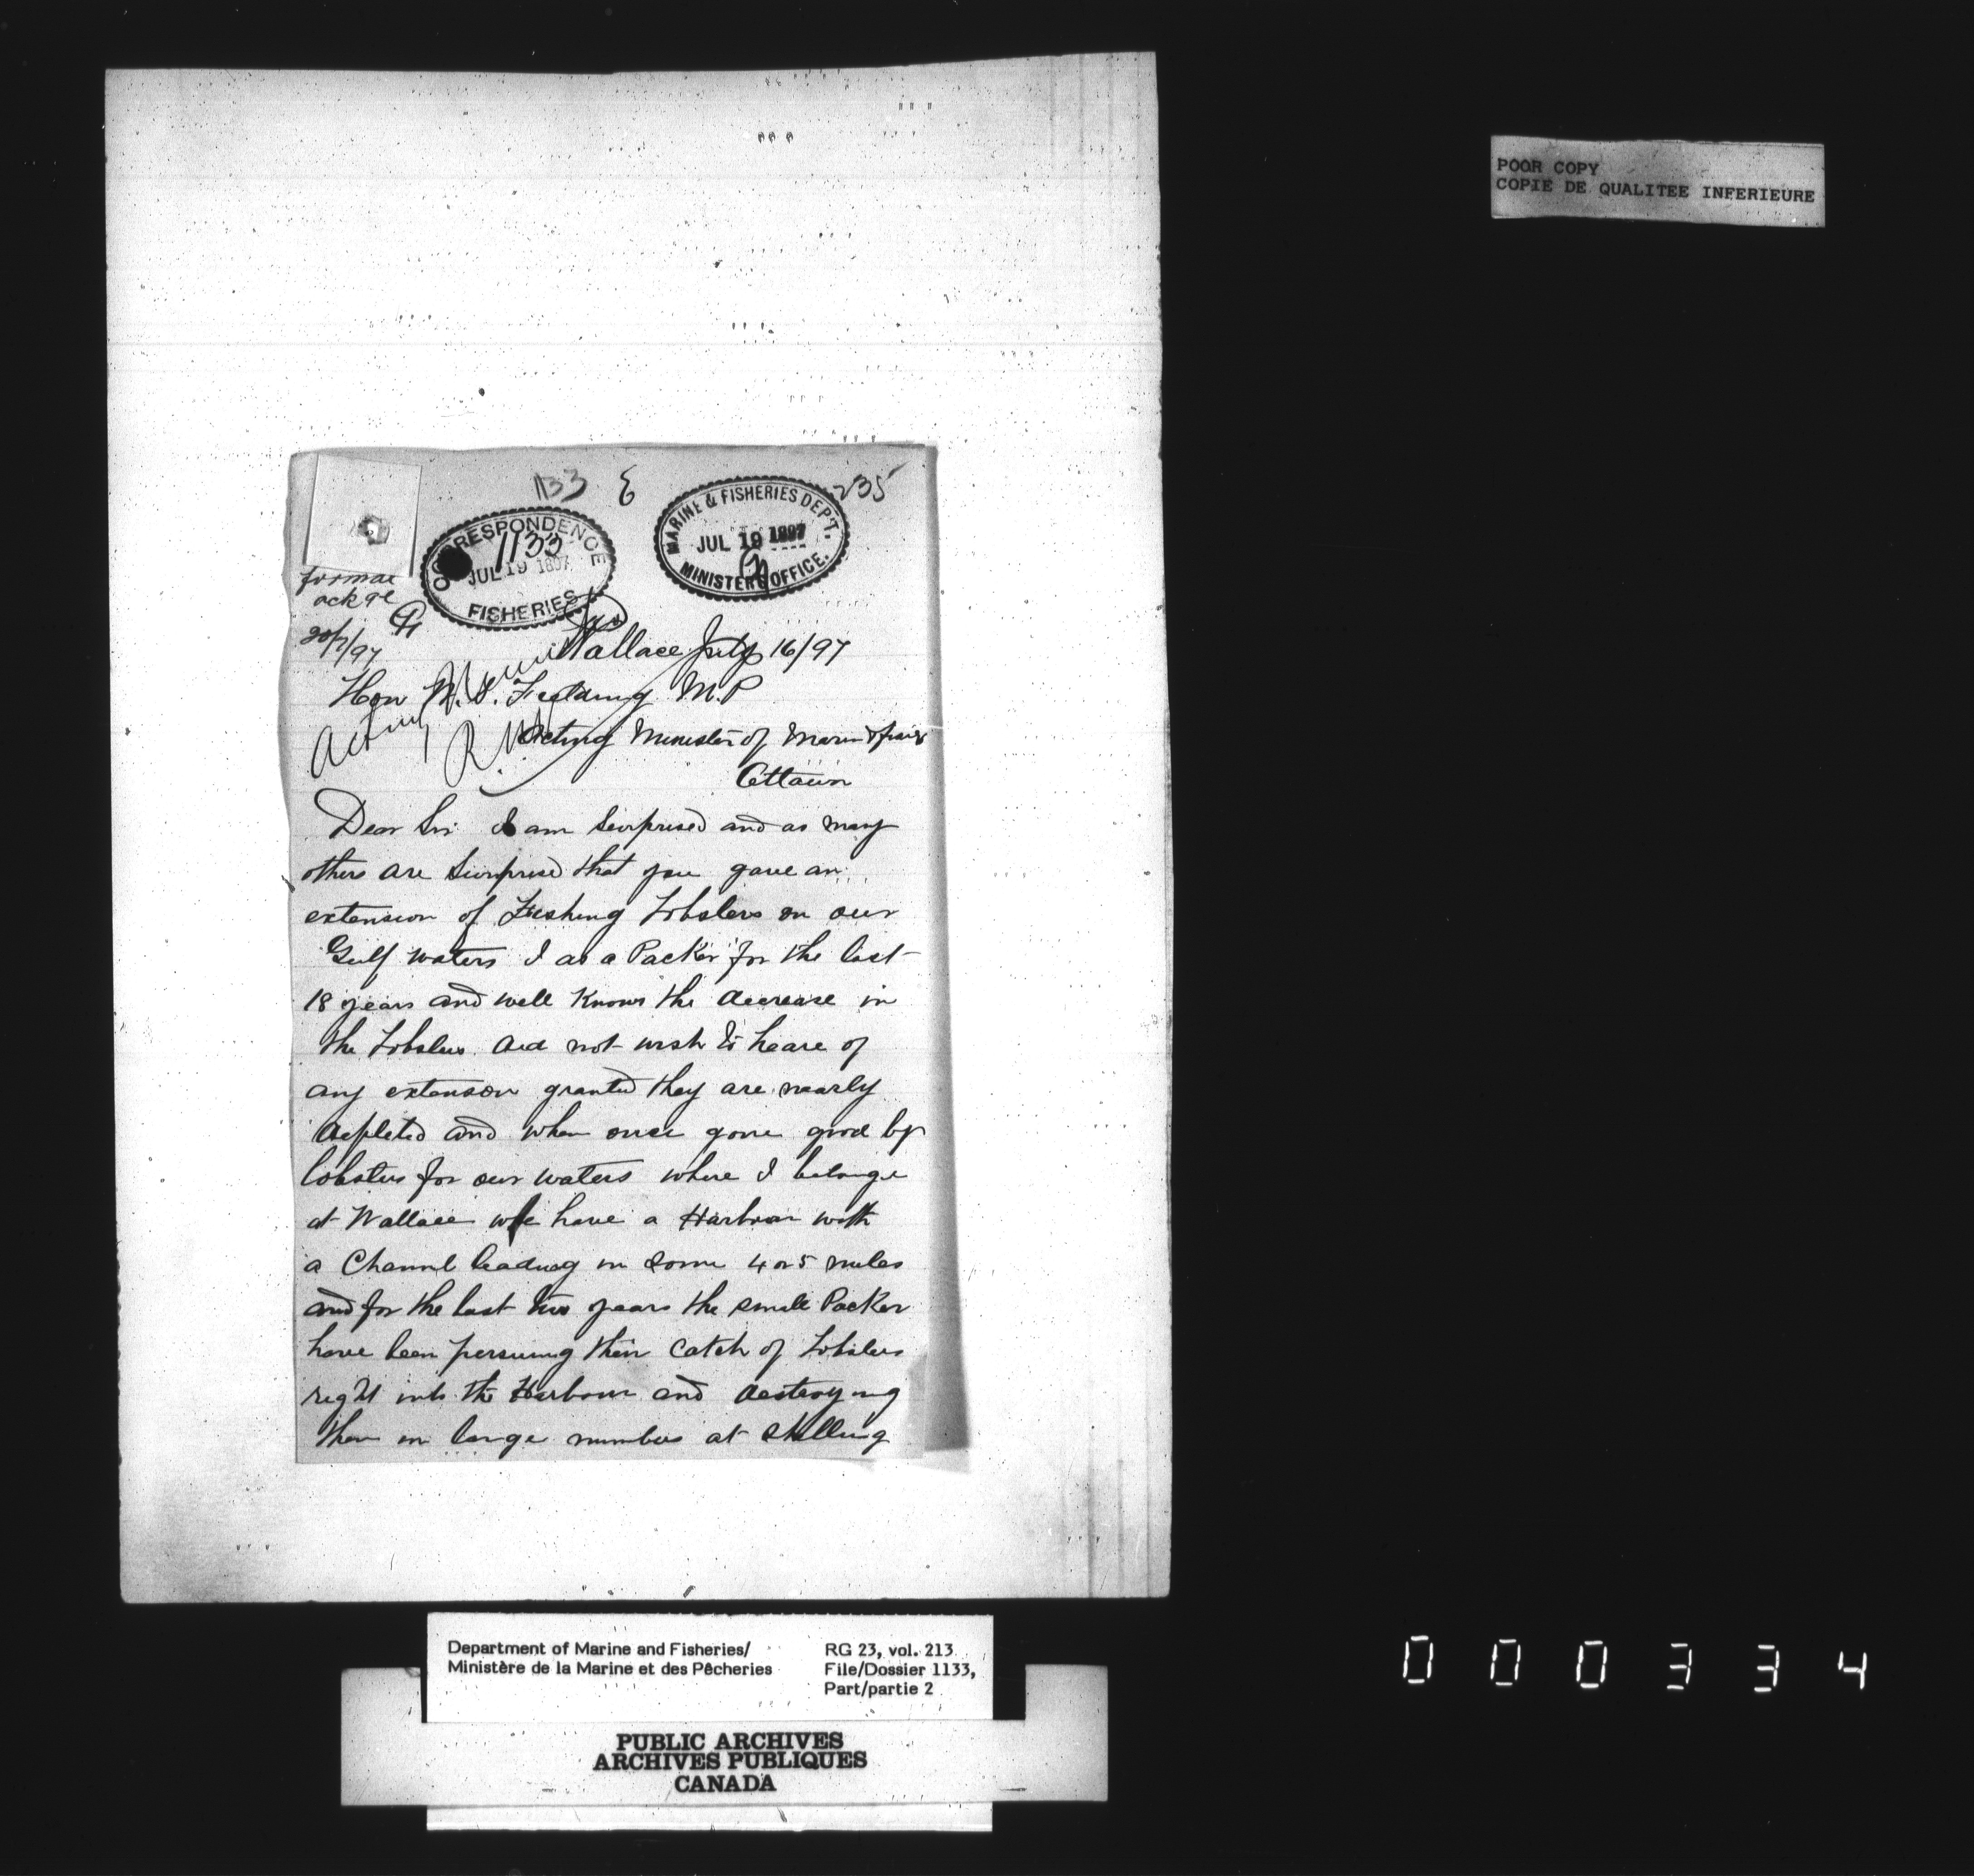 POOR COPY
COPIE DE QUALITEE INFERIEURE
1133 E 235
CORRESPONDENCE
1133
JUL 19 1897
FISHERIES
MARINE & FISHERIES DEP'T.
JUL 19 1897
MINISTERS OFFICE.
formal
ackge
20/7/97
Wallace July 16/97
Hon W. S. Fielding M.P
Acting Minister of Marin & Fisheries
Ottawa
Dear Sir I am Surprised and as many
others are Surprised that you gave an
extension of Fishing Lobsters on our
Gulf waters I as a Packer for the last
18 years and well Knows the decrease in
the Lobsters did not wish to heare of
any extenson granted they are nearly
depleted and when once gone good by
lobsters for our waters where I belonge
at Wallace we have a Harbour with
a Channel leading in some 4 or 5 miles
and for the last two years the small Packer
have been persuing their catch of Lobsters
right into the Harbour and destroying
them in large numbers at
Department of Marine and Fisheries/
Ministère de la Marine et des Pêcheries
RG 23, vol. 213
File/Dossier 1133,
Part/partie 2
PUBLIC ARCHIVES
ARCHIVES PUBLIQUES
CANADA
000334